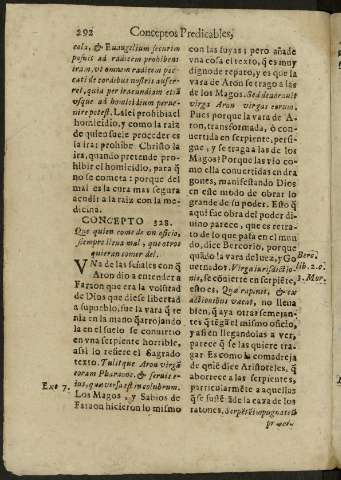 292 Conceptos Predicables,
cola, & Euangelium securim
posuit ad radicem prohibens
iram, vt omnem radicem pec-
cati de cordibus nostris aufer-
ret, quia per iracundiam etiã
vsque ad homicidium perue-
nire potest. La lei prohibia el
homicidio, y como la raiz
de quien suele proceder es
la ira: prohibe Christo la
ira, quando pretende pro-
hibir el homicidio, para q̃
no se cometa: porque del
mal es la cura mas segura
acudir a la raiz con la me-
dicina.
CONCEPTO 328.
Que quien come de vn oficio,
siempre lleua mal, que otros
quieran comer del.
VNa de las señales con q̃
Aron dio a entender a
Faraon que era la volũtad
de Dios que diese libertad
a su pueblo, fue la vara q̃ te
nia en la mano q̃ arrojando
la en el suelo se conuirtio
en vna serpiente horrible,
asi lo refiere el Sagrado
texto. Tulitque Aron virgã
coram Pharaone, & seruis e-
Exo 7. ius, quæ versa est in colubrum.
Los Magos, y Sabios de
Faraon hicieron lo mismo
con las suyas; pero añade
vna cosa el texto, q̃ es muy
digno de reparo, y es que la
vara de Aron se trago a las
de los Magos. Sed deuorauit
virga Aron virgas eorum.
Pues porque la vara de A-
ron, transformada, ò con-
uertida en serpiente, persi-
gue, y se traga a las de los
Magos? Porque las vio co-
mo ella conuertidas en dra
gones, manifestando Dios
en este modo de obrar lo
grande de su poder. Esto q̃
aqui fue obra del poder di-
uino parece, que es retra-
to de lo que pasa en el mun
do, dice Bercorio, porque
quãdo la vara de luez, y Go
uernador. Virga iurisdictio
nis, se cõuierte en serpiẽte,
esto es, Quæ rapinæ, & ex
actionibus vacat, no lleua
bien, q̃ aya otras semejan-
tes q̃ tẽgã el mismo oficio,
y asi en llegandolas a ver,
parece q̃ se las quiere tra-
gar. Es como la comadreja
de quiẽ dice Aristoteles, q̃
aborrece a las serpientes,
particularmẽte a aquellas
q̃ se sustẽtã de la caza de los
ratones. Serpẽtẽ impugnat eã
Berc.
lib. 2. o.
3. Mor.